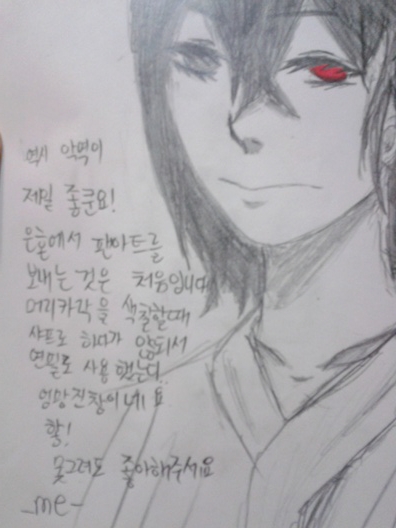 역시 악역이
제일 좋군요!
은혼에서 판아트를
보내는 것은 처음입니다
머리카락을 색칠할때
샤프로 하다가 않되서
연필로 사용했는데..
엉망진창이네요
핳!
못그려도 좋아해주세요
-me-